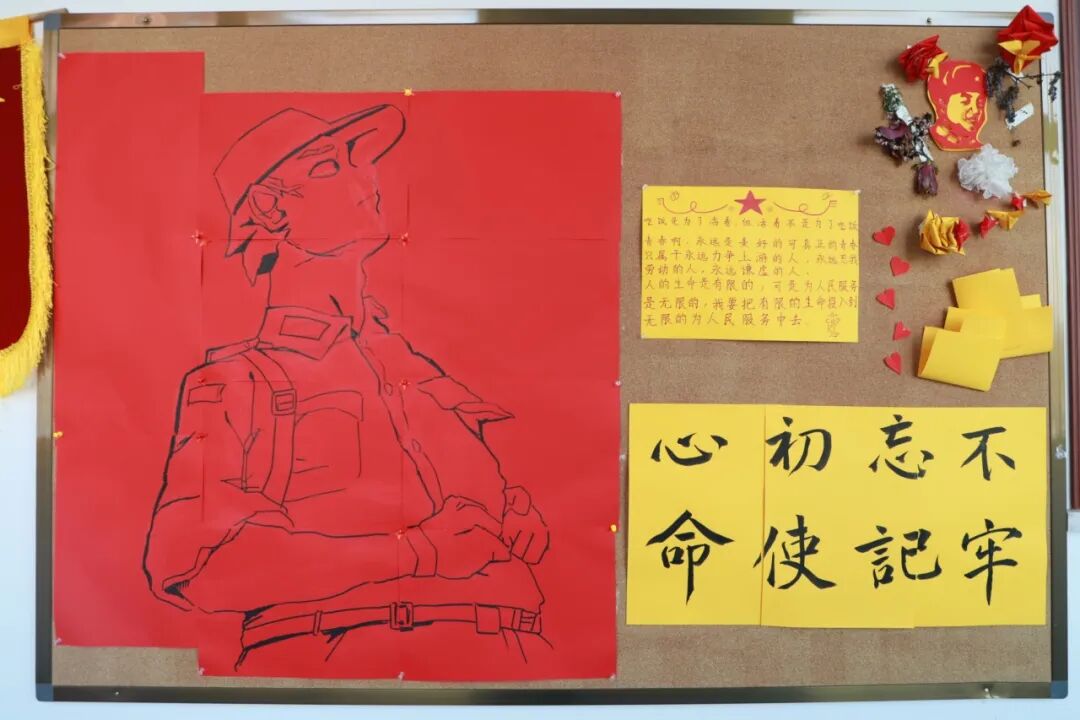 吃饭是为了活着,但活着不是为了吃饭
青春啊,永远是美好的可真正的青春
只属于永远力争上游的人,永远忘我
劳动的人,永远谦虚的人.
人的生命是有限的,可是为人民服务
是无限的,我要把有限的生命投入到
无限的为人民服务中去.
不忘初心
牢記使命